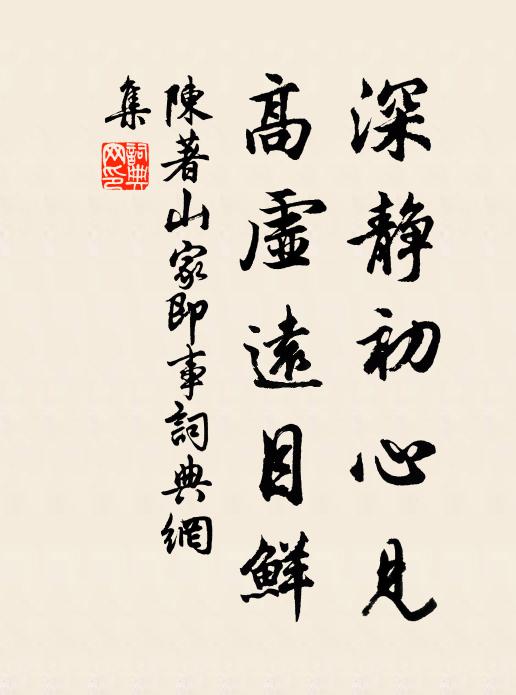 深靜初心見
高虛遠目鮮
陳著山家即事詞典網
集
詞典
网印